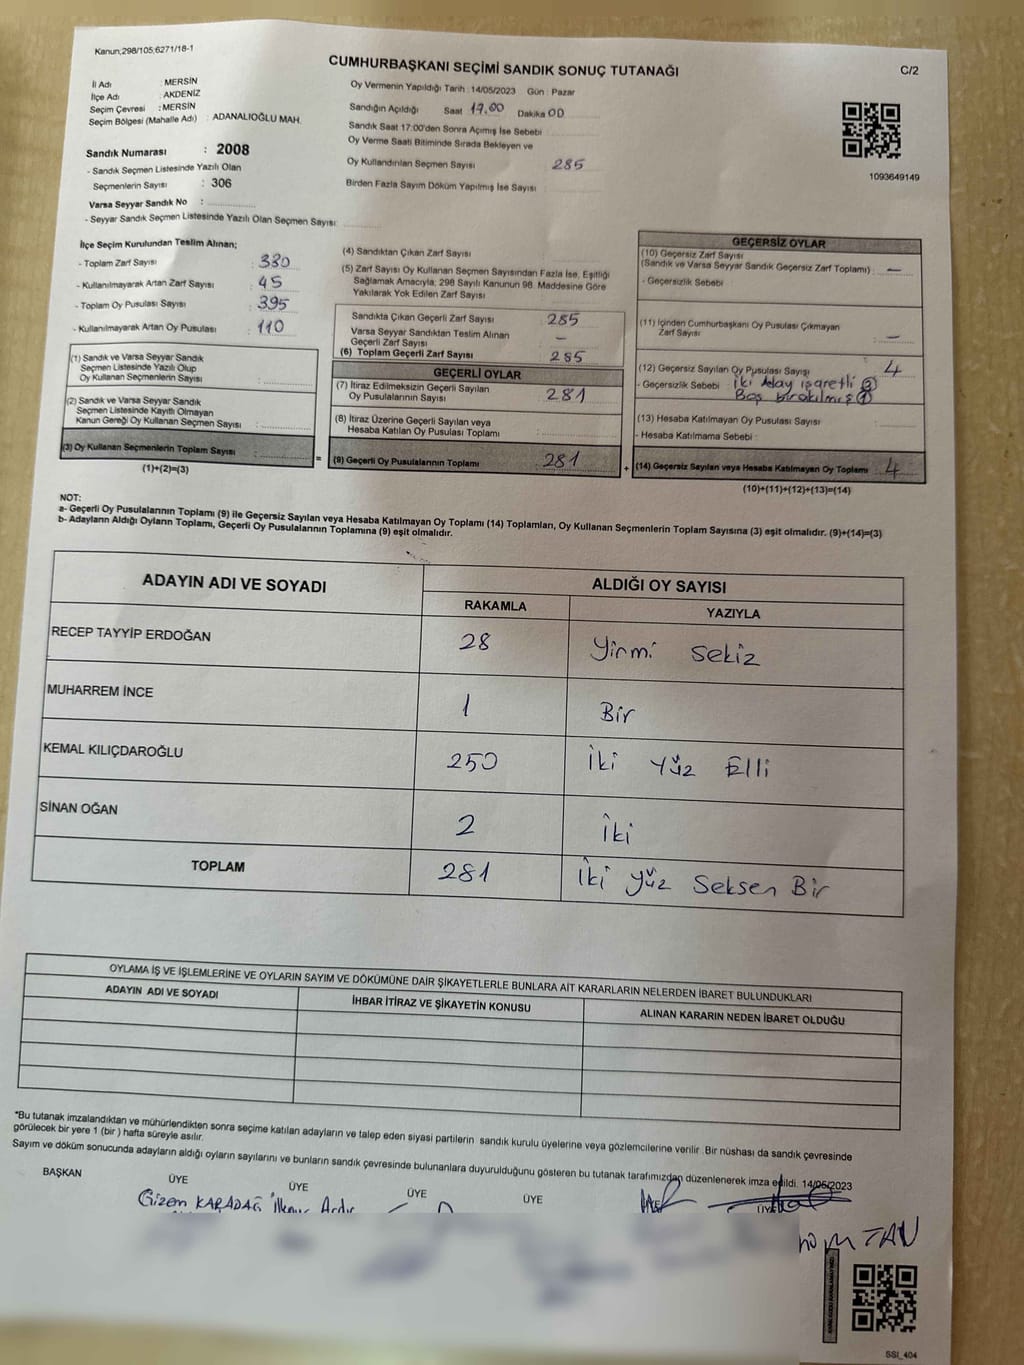 Kanun;298/105;6271/18-1
CUMHURBAŞKANI SEÇİMİ SANDIK SONUÇ TUTANAĞI
C/2
İl Adı : MERSİN
İlçe Adı : AKDENİZ
Seçim Çevresi : MERSİN
Seçim Bölgesi (Mahalle Adı) : ADANALIOĞLU MAH.
Sandık Numarası : 2008
- Sandık Seçmen Listesinde Yazılı Olan
Seçmenlerin Sayısı : 306
Varsa Seyyar Sandık No :
- Seyyar Sandık Seçmen Listesinde Yazılı Olan Seçmen Sayısı:
Oy Vermenin Yapıldığı Tarih : 14/05/2023 Gün : Pazar
Sandığın Açıldığı Saat 17.00 Dakika 00
Sandık Saat 17:00'den Sonra Açımış İse Sebebi
Oy Verme Saati Bitiminde Sırada Bekleyen ve
Oy Kullandırılan Seçmen Sayısı 285
Birden Fazla Sayım Döküm Yapılmış İse Sayısı
1093649149
İlçe Seçim Kurulundan Teslim Alınan;
- Toplam Zarf Sayısı : 330
- Kullanılmayarak Artan Zarf Sayısı : 45
- Toplam Oy Pusulası Sayısı : 395
- Kullanılmayarak Artan Oy Pusulası : 110
(1) Sandık ve Varsa Seyyar Sandık
Seçmen Listesinde Yazılı Olup
Oy Kullanan Seçmenlerin Sayısı :
(2) Sandık ve Varsa Seyyar Sandık
Seçmen Listesinde Kayıtlı Olmayan
Kanun Gereği Oy Kullanan Seçmen Sayısı :
(3) Oy Kullanan Seçmenlerin Toplam Sayısı :
(1)+(2)=(3)
(4) Sandıktan Çıkan Zarf Sayısı
(5) Zarf Sayısı Oy Kullanan Seçmen Sayısından Fazla İse, Eşitliği
Sağlamak Amacıyla; 298 Sayılı Kanunun 98. Maddesine Göre
Yakılarak Yok Edilen Zarf Sayısı
Sandıkta Çıkan Geçerli Zarf Sayısı 285
Varsa Seyyar Sandıktan Teslim Alınan
Geçerli Zarf Sayısı : –
(6) Toplam Geçerli Zarf Sayısı 285
=
GEÇERLİ OYLAR
(7) İtiraz Edilmeksizin Geçerli Sayılan
Oy Pusulalarının Sayısı : 281
(8) İtiraz Üzerine Geçerli Sayılan veya
Hesaba Katılan Oy Pusulası Toplamı :
(9) Geçerli Oy Pusulalarının Toplamı : 281
+
GEÇERSİZ OYLAR
(10) Geçersiz Zarf Sayısı
(Sandık ve Varsa Seyyar Sandık Geçersiz Zarf Toplamı) : –
- Geçersizlik Sebebi :
(11) İçinden Cumhurbaşkanı Oy Pusulası Çıkmayan
Zarf Sayısı : –
(12) Geçersiz Sayılan Oy Pusulası Sayısı : 4
- Geçersizlik Sebebi : iki aday işaretli ③
Boş bırakılmış ①
(13) Hesaba Katılmayan Oy Pusulası Sayısı :
- Hesaba Katılmama Sebebi :
(14) Geçersiz Sayılan veya Hesaba Katılmayan Oy Toplamı : 4
(10)+(11)+(12)+(13)=(14)
NOT:
a- Geçerli Oy Pusulalarının Toplamı (9) ile Geçersiz Sayılan veya Hesaba Katılmayan Oy Toplamı (14) Toplamları, Oy Kullanan Seçmenlerin Toplam Sayısına (3) eşit olmalıdır. (9)+(14)=(3)
b- Adayların Aldığı Oyların Toplamı, Geçerli Oy Pusulalarının Toplamına (9) eşit olmalıdır.
ADAYIN ADI VE SOYADI
ALDIĞI OY SAYISI
RAKAMLA YAZIYLA
RECEP TAYYİP ERDOĞAN 28 Yirmi Sekiz
MUHARREM İNCE 1 Bir
KEMAL KILIÇDAROĞLU 250 İki Yüz Elli
SİNAN OĞAN 2 İki
TOPLAM 281 İki Yüz Seksen Bir
OYLAMA İŞ VE İŞLEMLERİNE VE OYLARIN SAYIM VE DÖKÜMÜNE DAİR ŞİKAYETLERLE BUNLARA AİT KARARLARIN NELERDEN İBARET BULUNDUKLARI
ADAYIN ADI VE SOYADI İHBAR İTİRAZ VE ŞİKAYETİN KONUSU ALINAN KARARIN NEDEN İBARET OLDUĞU
*Bu tutanak imzalandıktan ve mühürlendikten sonra seçime katılan adayların ve talep eden siyasi partilerin sandık kurulu üyelerine veya gözlemcilerine verilir. Bir nüshası da sandık çevresinde
görülecek bir yere 1 (bir ) hafta süreyle asılır.
Sayım ve döküm sonucunda adayların aldığı oyların sayılarını ve bunların sandık çevresinde bulunanlara duyurulduğunu gösteren bu tutanak tarafımızdan düzenlenerek imza edildi. 14/05/2023
BAŞKAN ÜYE ÜYE ÜYE ÜYE ÜYE
Gizem KARADAĞ
TAN
SSI_404